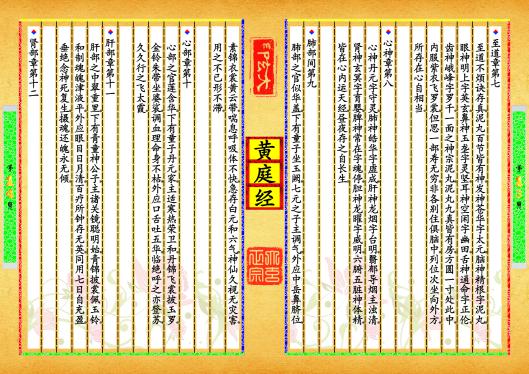 至道章第七
至道不烦诀存真泥丸百节皆有神发神苍华字太元脑神精根字泥丸
眼神明上字英玄鼻神玉垄字灵坚耳神空闲字幽田舌神通命字正伦
齿神崿峰字罗千一面之神宗泥丸泥丸九真皆有房方圆一寸处此中
同服紫衣飞罗裳但思一部寿无穷非各别住俱脑中列位次坐向外方
所存在心自相当
心神章第八
心神丹元字守灵肺神皓华字虚成肝神龙烟字含明翳郁导烟主浊清
肾神玄冥字育婴脾神常在字魂停胆神龙曜字威明六腑五脏神体精
皆在心内运天经昼夜存之自长生
肺部章第九
肺部之宫似华盖下有童子坐玉阙七元之子主调气外应中岳鼻脐位
黄庭经
素锦衣裳黄云带喘息呼吸体不快急存白元和六气神仙久视无灾害
用之不已形不滞
心部章第十
心部之宫莲含华下有童子丹元家主适寒热荣卫和丹锦飞裳披玉罗
金铃朱带坐婆娑调血理命身不枯外应口舌吐五华临绝呼之亦登苏
久久行之飞太霞
肝部章第十一
肝部之中翠重里下有青童神公子主诸关镜聪明始青锦披裳佩玉铃
和制魂魄津液平外应眼目日月清百疴所钟存无英同用七日自充盈
垂绝念神死复生摄魂还魄永无倾
肾部章第十二